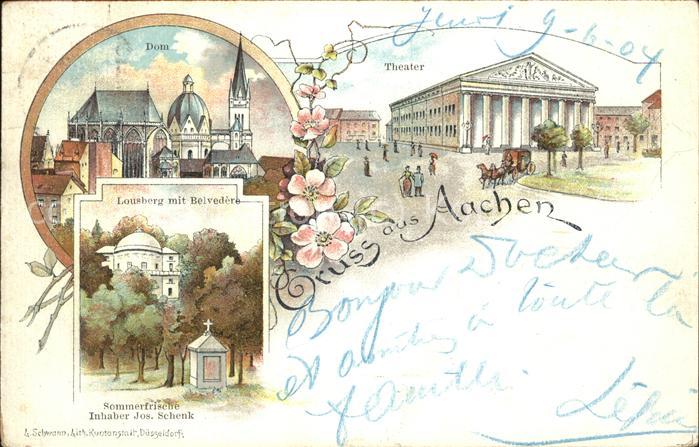 Jeudi 9-6-04
Dom
Theater
Lousberg mit Belvedère
Gruss aus Aachen
Bonjour Docteur
et amitiés à toute la
famille.
Sommerfrische
Inhaber Jos. Schenk
L. Schwann, Lith. Kunstanstalt, Düsseldorf.